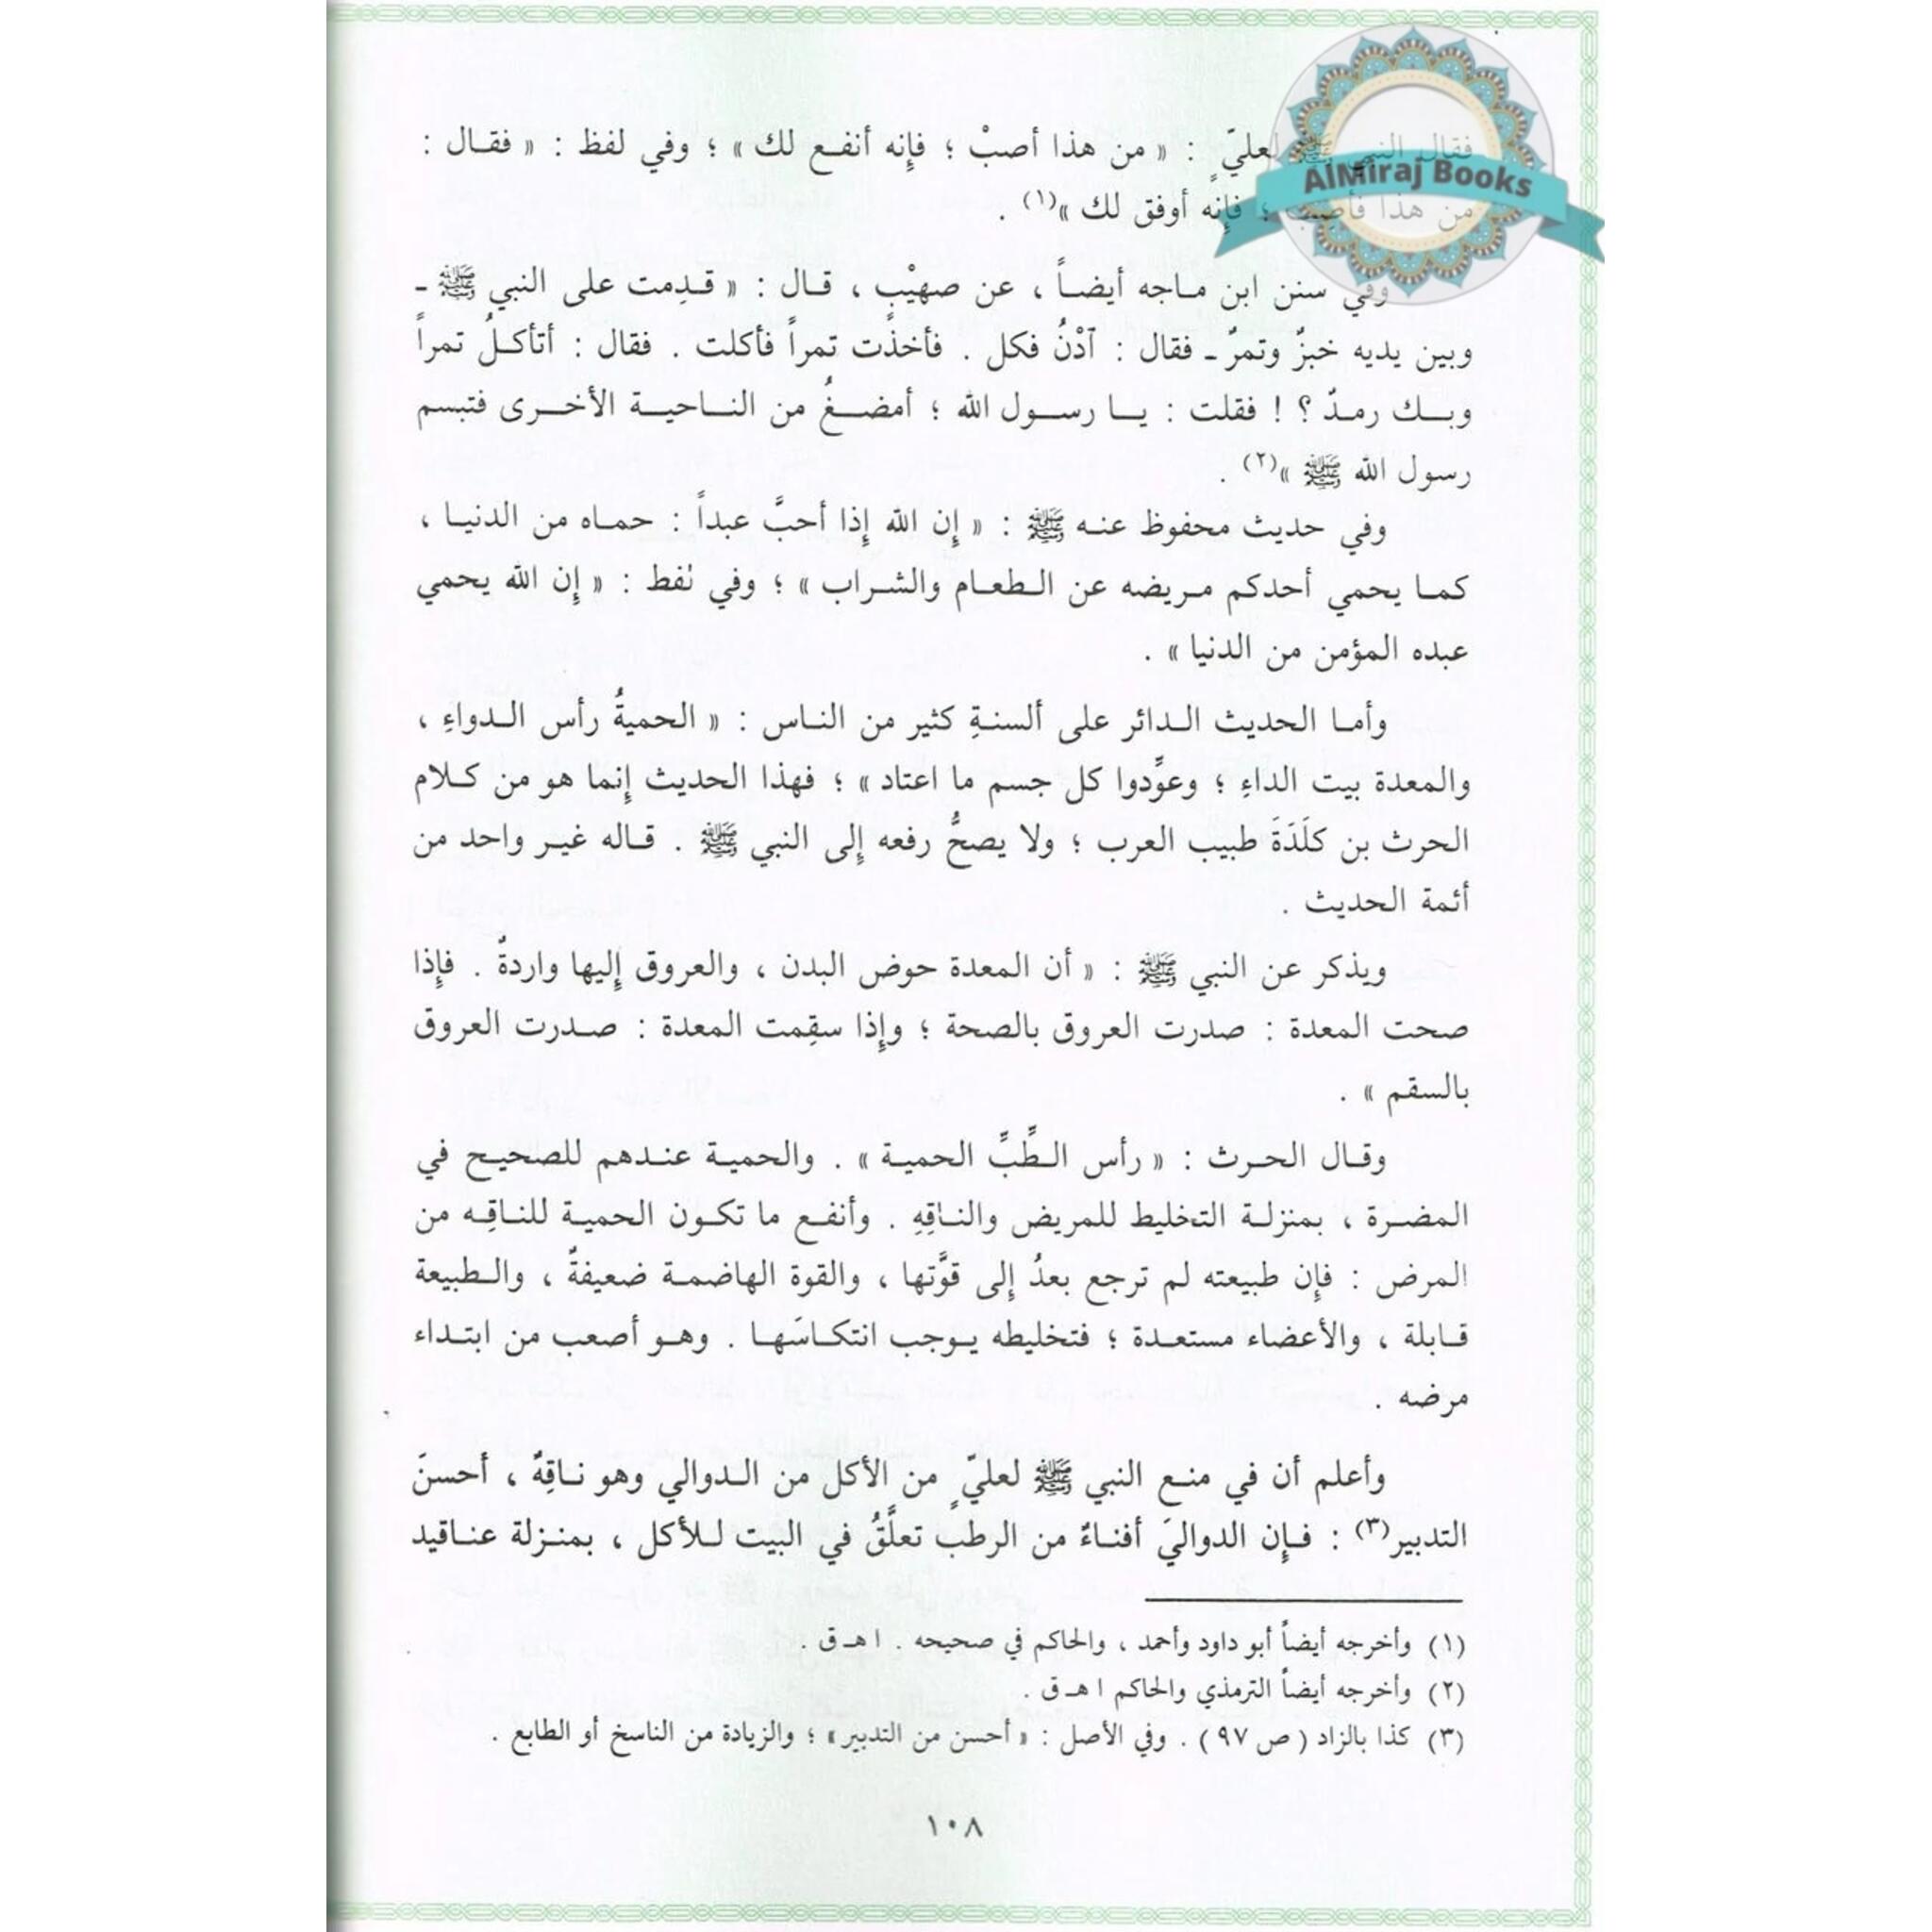 AlMiraj Books
فقال النبي ﷺ لعليّ : « من هذا أصبْ ؛ فإِنه أنفـع لك » ؛ وفي لفظ : « فقـال :
من هذا فأصب ؛ فإِنه أوفق لك »(١) .
وفي سنن ابن مـاجه أيضـاً ، عن صهيْبٍ ، قـال : « قـدِمت على النبي ﷺ ـ
وبين يديه خبزٌ وتمرٌ ـ فقال : آدْنُ فكل . فأخذت تمراً فأكلت . فقال : أتأكـلُ تمراً
وبـك رمـدٌ ؟ ! فقلت : يـا رسـول الله ؛ أمضـغُ من النـاحيـة الأخـرى فتبسم
رسول الله ﷺ »(٢) .
وفي حديث محفوظ عنـه ﷺ : « إِن الله إِذا أحبَّ عبداً : حمـاه من الدنيـا ،
كمـا يحمي أحدكم مـريضه عن الـطعـام والشـراب » ؛ وفي نفط : « إِن الله يحمي
عبده المؤمن من الدنيا » .
وأمـا الحديث الـدائر على ألسنـةِ كثير من النـاس : « الحميةُ رأس الـدواءِ ،
والمعدة بيت الداءِ ؛ وعوِّدوا كل جسم ما اعتاد » ؛ فهذا الحديث إِنما هو من كـلام
الحرث بن كلَدَةَ طبيب العرب ؛ ولا يصحُّ رفعه إِلى النبي ﷺ . قـاله غيـر واحد من
أئمة الحديث .
ويذكر عن النبي ﷺ : « أن المعدة حوض البدن ، والعروق إِليها واردةٌ . فإِذا
صحت المعدة : صدرت العروق بالصحة ؛ وإِذا سقِمت المعدة : صـدرت العروق
بالسقم » .
وقـال الحـرث : « رأس الـطِّبِّ الحميـة » . والحميـة عنـدهم للصحيـح في
المضـرة ، بمنزلـة التخليط للمريض والنـاقِهِ . وأنفـع ما تكـون الحميـة للنـاقِـه من
المرض : فإِن طبيعته لم ترجع بعدُ إِلى قوَّتها ، والقوة الهاضمـة ضعيفةٌ ، والـطبيعة
قـابلة ، والأعضاء مستعـدة ؛ فتخليطه يـوجب انتكـاسَهـا . وهـو أصعب من ابتـداء
مرضه .
وأعلم أن في منـع النبي ﷺ لعليٍّ من الأكل من الـدوالي وهو نـاقِهٌ ، أحسنَ
التدبير(٣) : فـإِن الدواليَ أفنـاءٌ من الرطب تعلَّقُ في البيت لـلأكل ، بمنـزلة عنـاقيد
(١) وأخرجه أيضاً أبو داود وأحمد ، والحاكم في صحيحه . ا هـ ق .
(٢) وأخرجه أيضاً الترمذي والحاكم ا هـ ق .
(٣) كذا بالزاد ( ص ٩٧ ) . وفي الأصل : « أحسن من التدبير » ؛ والزيادة من الناسخ أو الطابع .
١٠٨